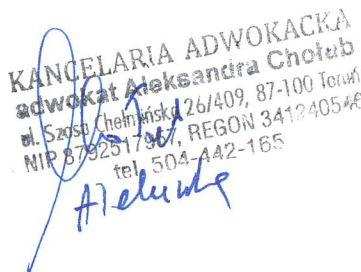 KANCELARIA ADWOKACKA
adwokat Aleksandra Chołub
ul. Szosa Chełmińska 26/409, 87-100 Toruń
NIP 8792517967, REGON 341240546
tel. 504-442-165